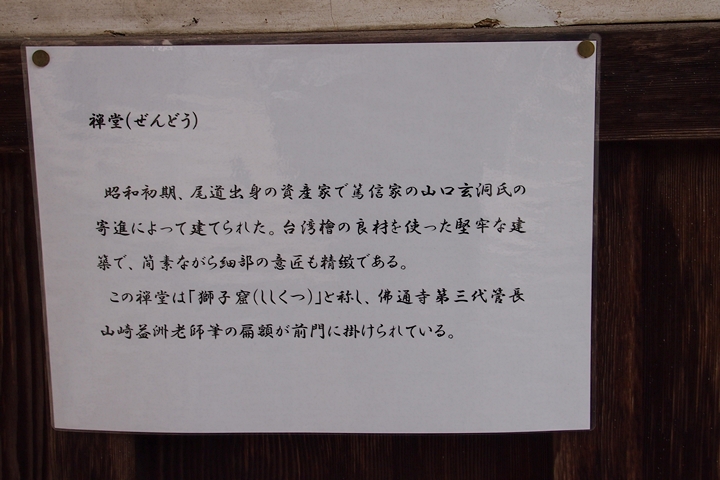 禅堂(ぜんどう)
昭和初期、尾道出身の資産家で篤信家の山口玄洞氏の
寄進によって建てられた。台湾檜の良材を使った堅牢な建
築で、簡素ながら細部の意匠も精緻である。
この禅堂は「獅子窟(ししくつ)」と称し、佛通寺第三代管長
山崎益洲老師筆の扁額が前門に掛けられている。